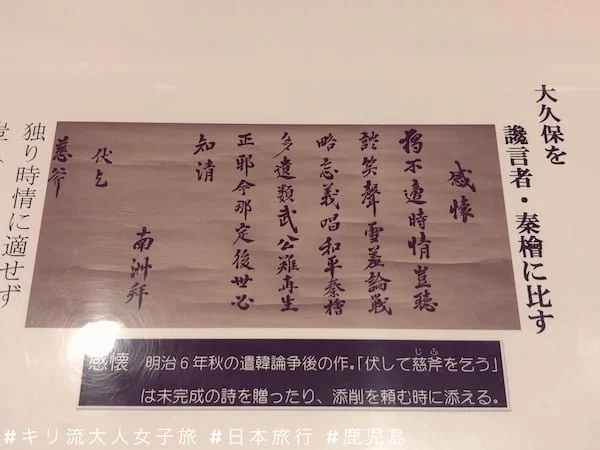 大久保を
讒言者・秦檜に比す
感懷
獨不適時情豈聽
歡笑聲雪羞論戰
略忘義唱和平秦檜
多遺類武公難再生
正邪今那定後世必
知清
南洲拝
伏乞
慈斧
独り時情に適せず
じふ
感懐 明治6年秋の遣韓論争後の作。「伏して慈斧を乞う」
は未完成の詩を贈ったり、添削を頼む時に添える。
#キリ流大人女子旅 #日本旅行 #鹿児島